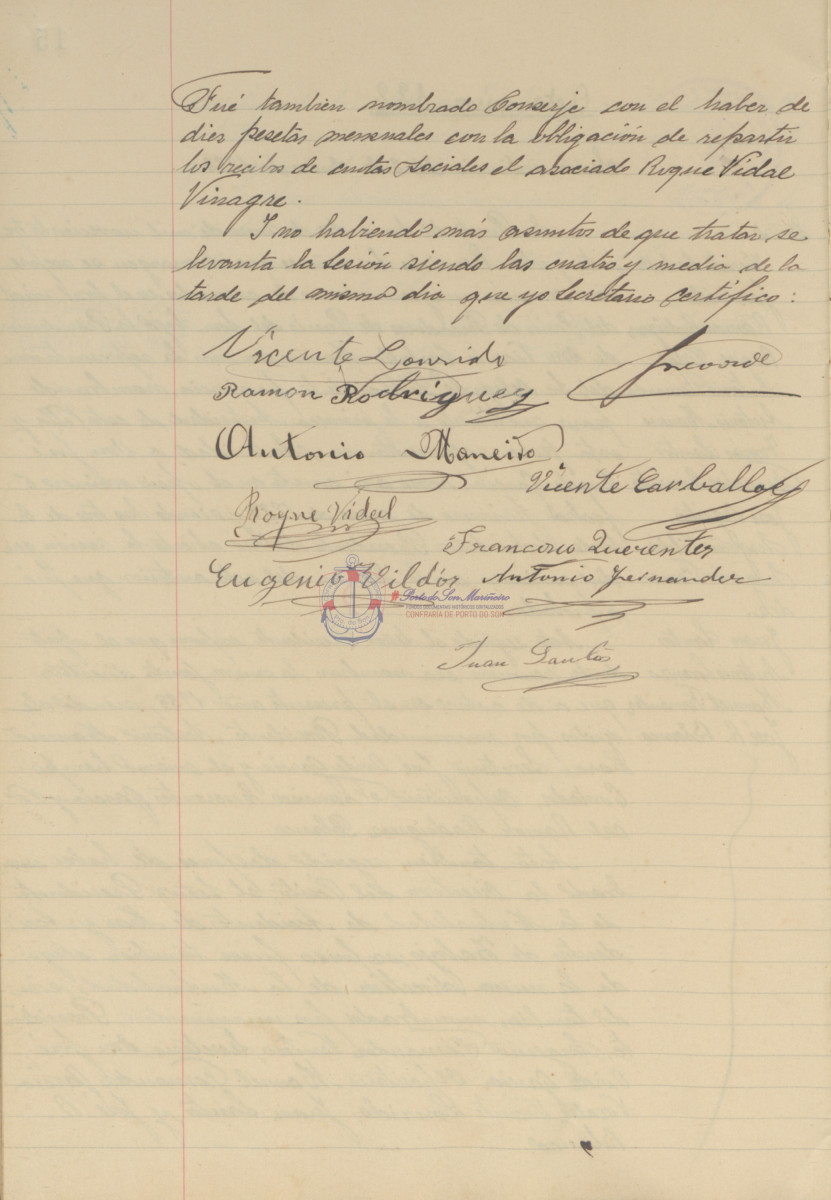 Fué tambien nombrado Conserje con el haber de
diez pesetas mensuales con la obligación de repartir
los recibos de cuotas sociales el asociado Roque Vidal
Vinagre.
I no habiendo más asuntos de que tratar se
levanta la sesión siendo las cuatro y media de la
tarde del mismo dia que yo Secretario certifico:
Vicente Lourido
Ramon Rodriguez
Antonio Maneiro
Vicente Carballo
Roque Vidal
Francisco
Eugenio Antonio Fernandez
Porto do Son Mariñeiro
FONDOS DOCUMENTAIS HISTÓRICOS DIXITALIZADOS
CONFRARÍA DE PORTO DO SON
Juan